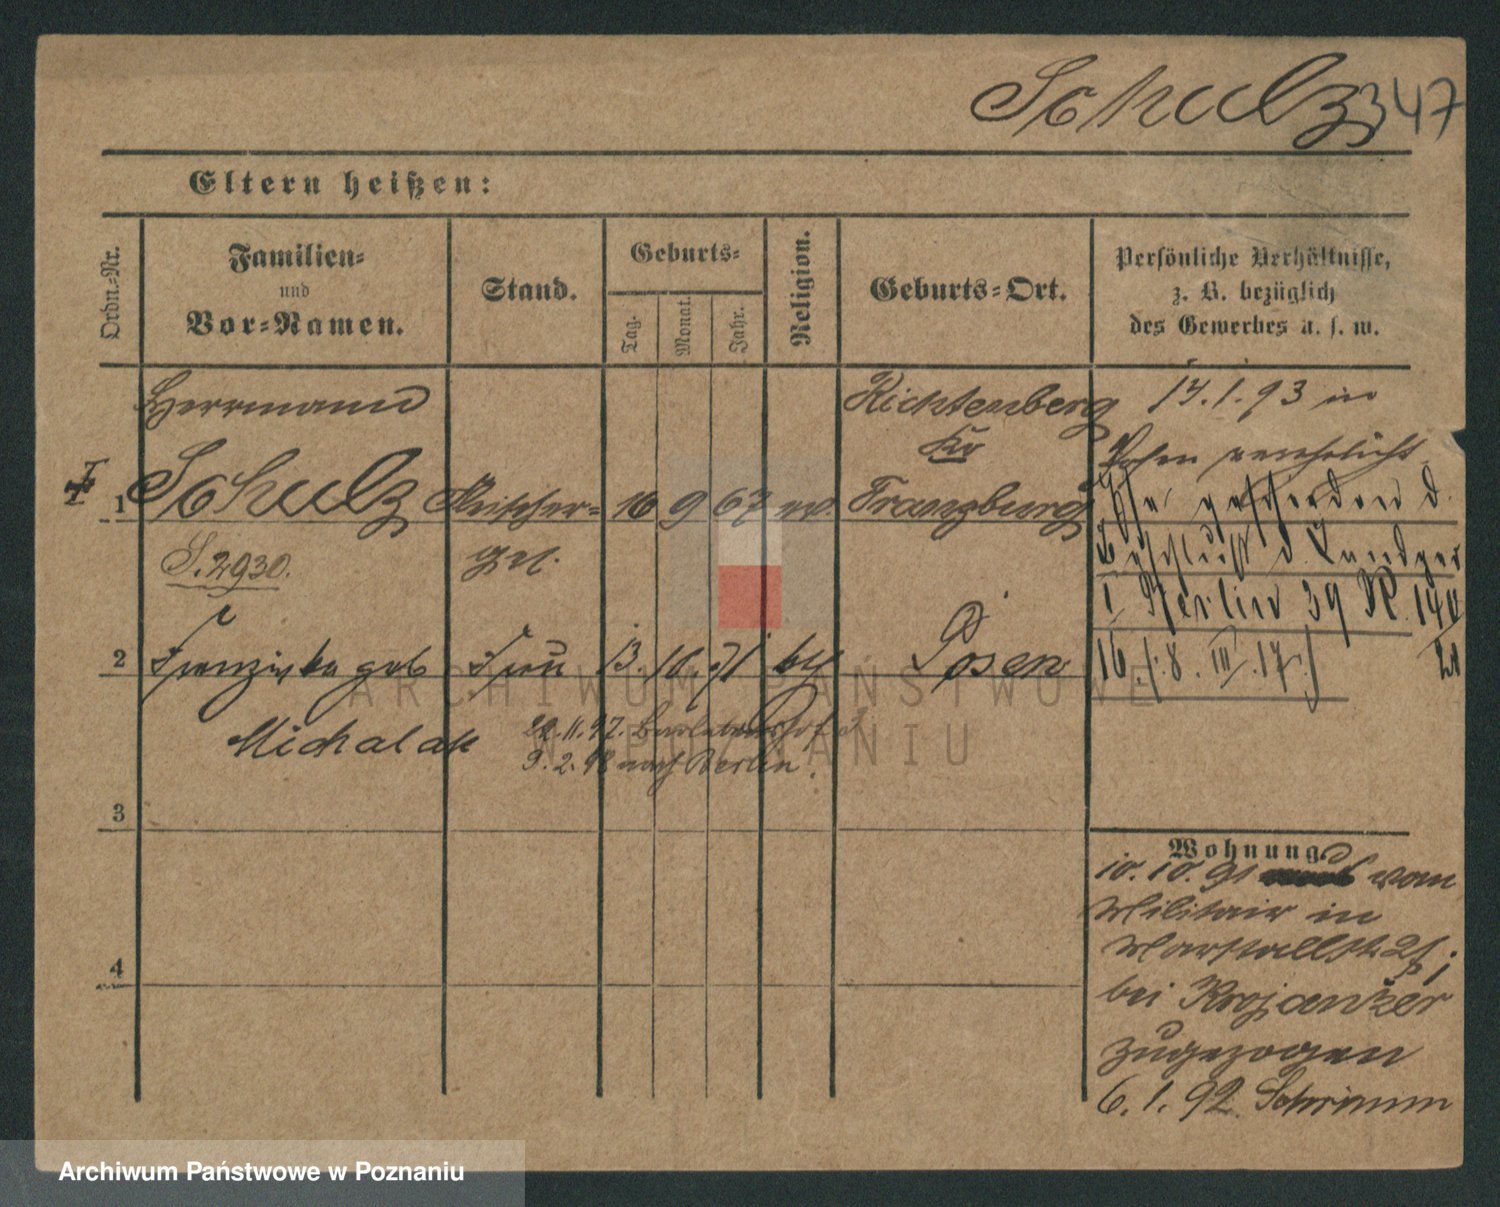 Schulz 347
Eltern heißen:
Ordn.-Nr.
Familien-
und
Vor-Namen.
Stand.
Geburts-
Tag.
Monat.
Jahr.
Religion.
Geburts-Ort.
Persönliche Verhältnisse,
z. B. bezüglich
des Gewerbes u. s. w.
1
Herrmann
Schulz
S. 2930.
Fleischer-
gel.
16 9 67 ev.
Richtenberg
Kr
Franzburg
2
Franziska geb
Michalak
Frau
13. 10. 71 kth
Posen
22.11.97.
9.2.98 nach Berlin.
3
4
14.1.93 in
Posen verehelicht
Ehe geschieden d.
Beschluß d. Landger
I Berlin 39 R. 140
16./.8. III. 17.
Wohnung
10.10.91 vom
Militair in
Marstallstr
bei Krojanker
zugezogen
6.1.92. Schrimm
ARCHIWUM PAŃSTWOWE
W POZNANIU
Archiwum Państwowe w Poznaniu